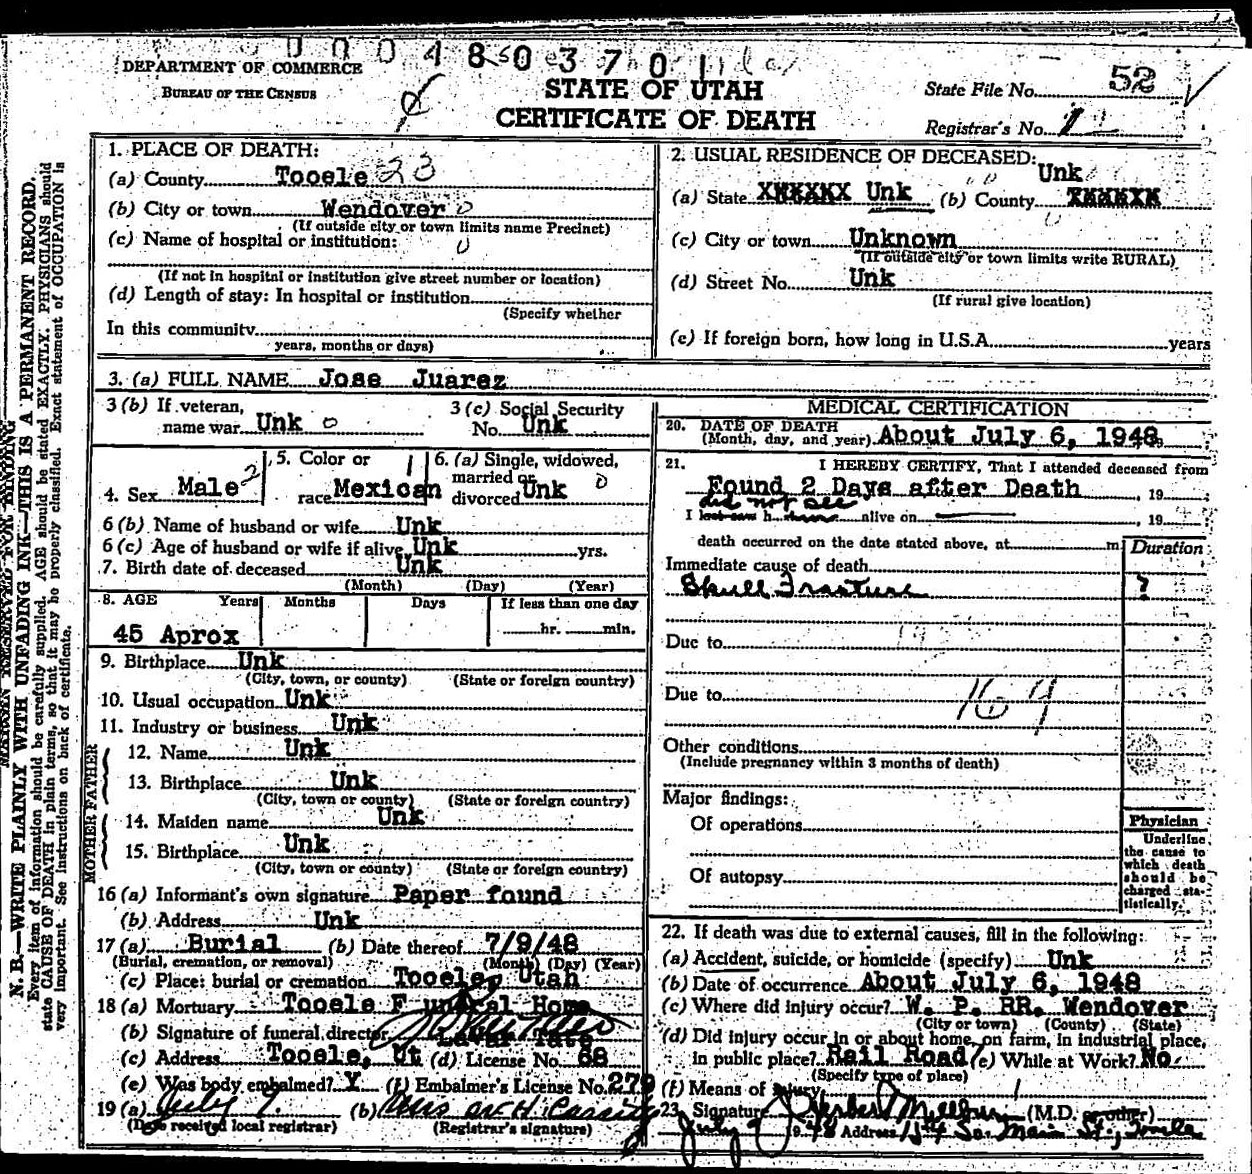 0004803701
DEPARTMENT OF COMMERCE
BUREAU OF THE CENSUS
STATE OF UTAH
CERTIFICATE OF DEATH
State File No. 52
Registrar's No.
N. B.—WRITE PLAINLY WITH UNFADING INK—THIS IS A PERMANENT RECORD.
Every item of information should be carefully supplied. AGE should be stated EXACTLY. PHYSICIANS should
state CAUSE OF DEATH in plain terms, so that it may be properly classified. Exact statement of OCCUPATION is
very important. See instructions on back of certificate.
1. PLACE OF DEATH:
(a) County Tooele 23
(b) City or town Wendover 0
(If outside city or town limits name Precinct)
(c) Name of hospital or institution: 0
(If not in hospital or institution give street number or location)
(d) Length of stay: In hospital or institution
(Specify whether
In this community
years, months or days)
2. USUAL RESIDENCE OF DECEASED:
Unk
(a) State XXXXXX Unk (b) County XXXXXX
(c) City or town Unknown
(If outside city or town limits write RURAL)
(d) Street No. Unk
(If rural give location)
(e) If foreign born, how long in U.S.A. years
3. (a) FULL NAME Jose Juarez
3 (b) If veteran,
name war Unk 0
3 (c) Social Security
No. Unk
4. Sex Male 2
5. Color or
race Mexican 1
6. (a) Single, widowed,
married or
divorced Unk 0
6 (b) Name of husband or wife Unk
6 (c) Age of husband or wife if alive Unk yrs.
7. Birth date of deceased Unk
(Month) (Day) (Year)
8. AGE Years Months Days If less than one day
45 Aprox hr. min.
9. Birthplace Unk
(City, town, or county) (State or foreign country)
10. Usual occupation Unk
11. Industry or business Unk
FATHER
12. Name Unk
13. Birthplace Unk
(City, town or county) (State or foreign country)
MOTHER
14. Maiden name Unk
15. Birthplace Unk
(City, town or county) (State or foreign country)
16 (a) Informant's own signature Paper found
(b) Address Unk
17 (a) Burial (b) Date thereof 7/9/48
(Burial, cremation, or removal) (Month) (Day) (Year)
(c) Place: burial or cremation Tooele, Utah
18 (a) Mortuary Tooele Funeral Home
(b) Signature of funeral director
Lavar Tate
(c) Address Tooele, Ut (d) License No. 68
(e) Was body embalmed? Y (f) Embalmer's License No. 279
19 (a) July 9. (b)
(Date received local registrar) (Registrar's signature)
MEDICAL CERTIFICATION
20. DATE OF DEATH
(Month, day, and year) About July 6, 1948.
21. I HEREBY CERTIFY, That I attended deceased from
Found 2 Days after Death , 19
did not see
I last saw h alive on , 19
death occurred on the date stated above, at m
Duration
Immediate cause of death
Skull Fracture ?
Due to
Due to
164
Other conditions
(Include pregnancy within 3 months of death)
Major findings:
Of operations
Of autopsy
Physician
Underline
the cause to
which death
should be
charged sta-
tistically.
22. If death was due to external causes, fill in the following:
(a) Accident, suicide, or homicide (specify) Unk
(b) Date of occurrence About July 6, 1948
(c) Where did injury occur? W. P. RR. Wendover
(City or town) (County) (State)
(d) Did injury occur in or about home, on farm, in industrial place,
in public place? Rail Road (e) While at Work? No.
(Specify type of place)
(f) Means of injury
23. Signature (M.D. or other)
July 9 1948 Address So. Main St., Tooele